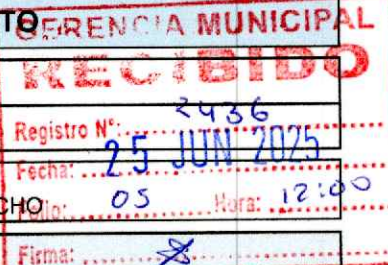 TO GERENCIA MUNICIPAL
RECIBIDO
Registro N°: 2436
Fecha: 25 JUN 2025
CHO Folio: 05 Hora: 12:00
Firma: